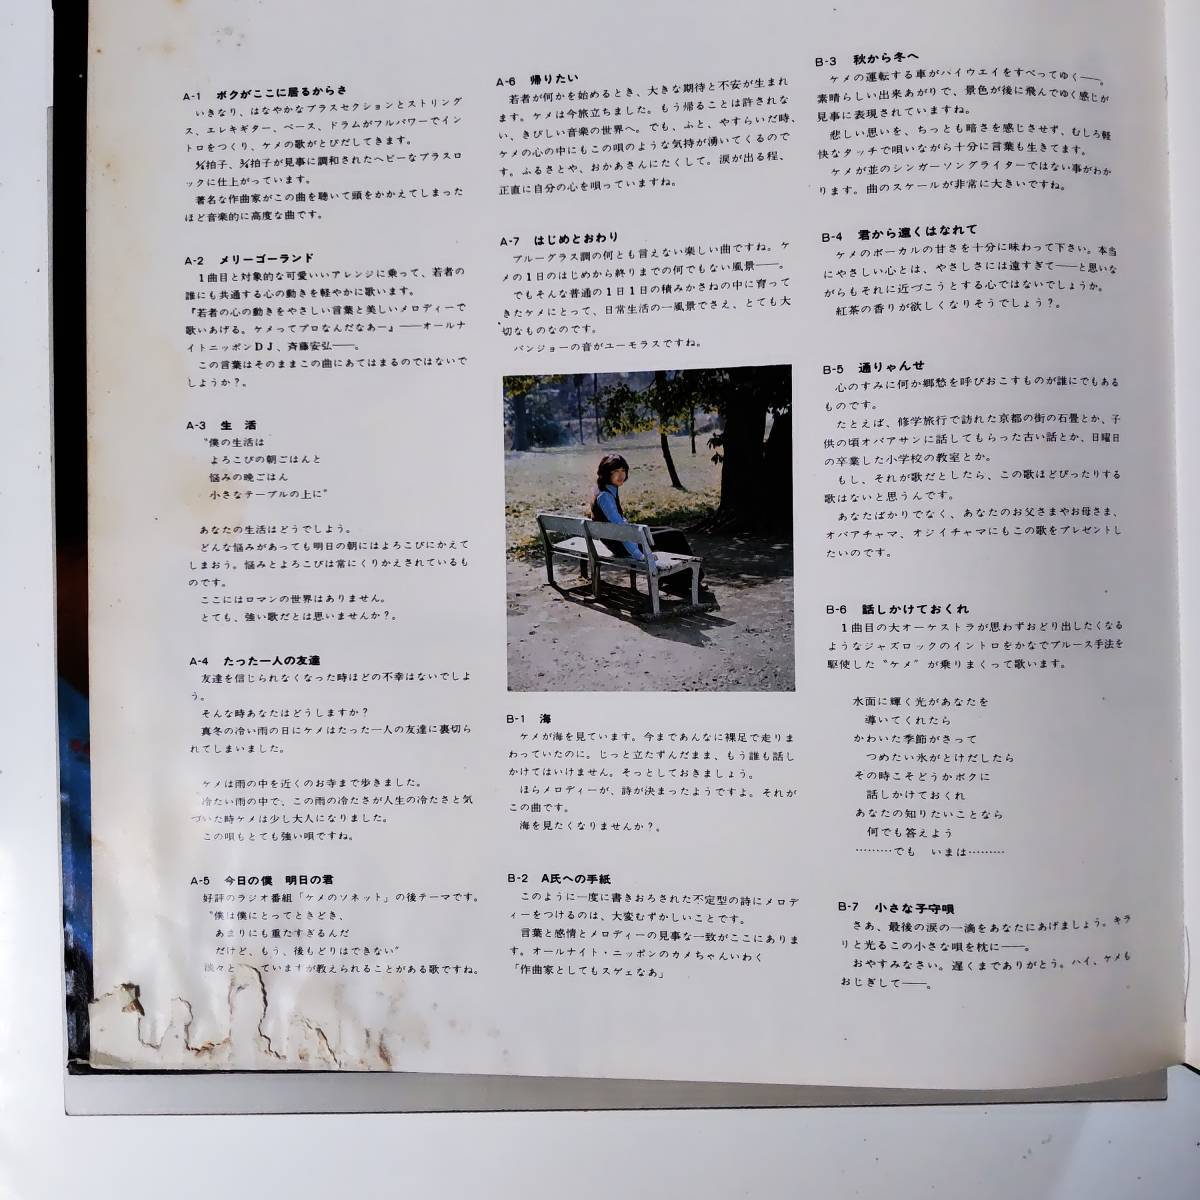 A-1 ボクがここに居るからさ
いきなり、はなやかなブラスセクションとストリング
ス、エレキギター、ベース、ドラムがフルパワーでイン
トロをつくり、ケメの歌がとびだしてきます。
拍子、¾拍子が見事に調和されたヘビーなブラスロ
ックに仕上がっています。
著名な作曲家がこの曲を聴いて頭をかかえてしまった
ほど音楽的に高度な曲です。
A-2 メリーゴーランド
1曲目と対象的な可愛いいアレンジに乗って、若者の
誰にも共通する心の動きを軽やかに歌います。
『若者の心の動きをやさしい言葉と美しいメロディーで
歌いあげる。ケメってプロなんだなあー』——オールナ
イトニッポンDJ、斉藤安弘——。
この言葉はそのままこの曲にあてはまるのではないで
しようか？。
A-3 生 活
“僕の生活は
よろこびの朝ごはんと
悩みの晩ごはん
小さなテーブルの上に”
あなたの生活はどうでしよう。
どんな悩みがあっても明日の朝にはよろこびにかえて
しまおう。悩みとよろこびは常にくりかえされているも
のです。
ここにはロマンの世界はありません。
とても、強い歌だとは思いませんか？。
A-4 たった一人の友達
友達を信じられなくなった時ほどの不幸はないでしよ
う。
そんな時あなたはどうしますか？
真冬の冷い雨の日にケメはたった一人の友達に裏切ら
れてしまいました。
ケメは雨の中を近くのお寺まで歩きました。
冷たい雨の中で、この雨の冷たさが人生の冷たさと気
づいた時ケメは少し大人になりました。
この唄もとても強い唄ですね。
A-5 今日の僕 明日の君
好評のラジオ番組「ケメのソネット」の後テーマです。
“僕は僕にとってときどき、
あまりにも重たすぎるんだ
だけど、もう、後もどりはできない”
淡々と っていますが教えられることがある歌ですね。
A-6 帰りたい
若者が何かを始めるとき、大きな期待と不安が生まれ
ます。ケメは今旅立ちました。もう帰ることは許されな
い、きびしい音楽の世界へ。でも、ふと、やすらいだ時、
ケメの心の中にもこの唄のような気持が湧いてくるので
す。ふるさとや、おかあさんにたくして。涙が出る程、
正直に自分の心を唄っていますね。
A-7 はじめとおわり
ブルーグラス調の何とも言えない楽しい曲ですね。ケ
メの1日のはじめから終りまでの何でもない風景——。
でもそんな普通の1日1日の積みかさねの中に育って
きたケメにとって、日常生活の一風景でさえ、とても大
切なものなのです。
バンジョーの音がユーモラスですね。
B-1 海
ケメが海を見ています。今まであんなに裸足で走りま
わっていたのに。じっと立たずんだまま、もう誰も話し
かけてはいけません。そっとしておきましょう。
ほらメロディーが、詩が決まったようですよ。それが
この曲です。
海を見たくなりませんか？。
B-2 A氏への手紙
このように一度に書きおろされた不定型の詩にメロデ
ィーをつけるのは、大変むずかしいことです。
言葉と感情とメロディーの見事な一致がここにありま
す。オールナイト・ニッポンのカメちゃんいわく
「作曲家としてもスゲェなあ」
B-3 秋から冬へ
ケメの運転する車がハイウエイをすべってゆく——。
素晴らしい出来あがりで、景色が後に飛んでゆく感じが
見事に表現されていますね。
悲しい思いを、ちっとも暗さを感じさせず、むしろ軽
快なタッチで唄いながら十分に言葉も生きてます。
ケメが並のシンガーソングライターではない事がわか
ります。曲のスケールが非常に大きいですね。
B-4 君から遠くはなれて
ケメのボーカルの甘さを十分に味わって下さい。本当
にやさしい心とは、やさしさには遠すぎて——と思いな
がらもそれに近づこうとする心ではないでしょうか。
紅茶の香りが欲しくなりそうでしょう？。
B-5 通りゃんせ
心のすみに何か郷愁を呼びおこすものが誰にでもある
ものです。
たとえば、修学旅行で訪れた京都の街の石畳とか、子
供の頃オバアサンに話してもらった古い話とか、日曜日
の卒業した小学校の教室とか。
もし、それが歌だとしたら、この歌ほどぴったりする
歌はないと思うんです。
あなたばかりでなく、あなたのお父さまやお母さま、
オバアチャマ、オジイチャマにもこの歌をプレゼントし
たいのです。
B-6 話しかけておくれ
1曲目の大オーケストラが思わずおどり出したくなる
ようなジャズロックのイントロをかなでブルース手法を
駆使した“ケメ”が乗りまくって歌います。
水面に輝く光があなたを
導いてくれたら
かわいた季節がさって
つめたい氷がとけだしたら
その時こそどうかボクに
話しかけておくれ
あなたの知りたいことなら
何でも答えよう
………でも いまは………
B-7 小さな子守唄
さあ、最後の涙の一滴をあなたにあげましょう。キラ
リと光るこの小さな唄を枕に——。
おやすみなさい。遅くまでありがとう。ハイ、ケメも
おじぎして——。